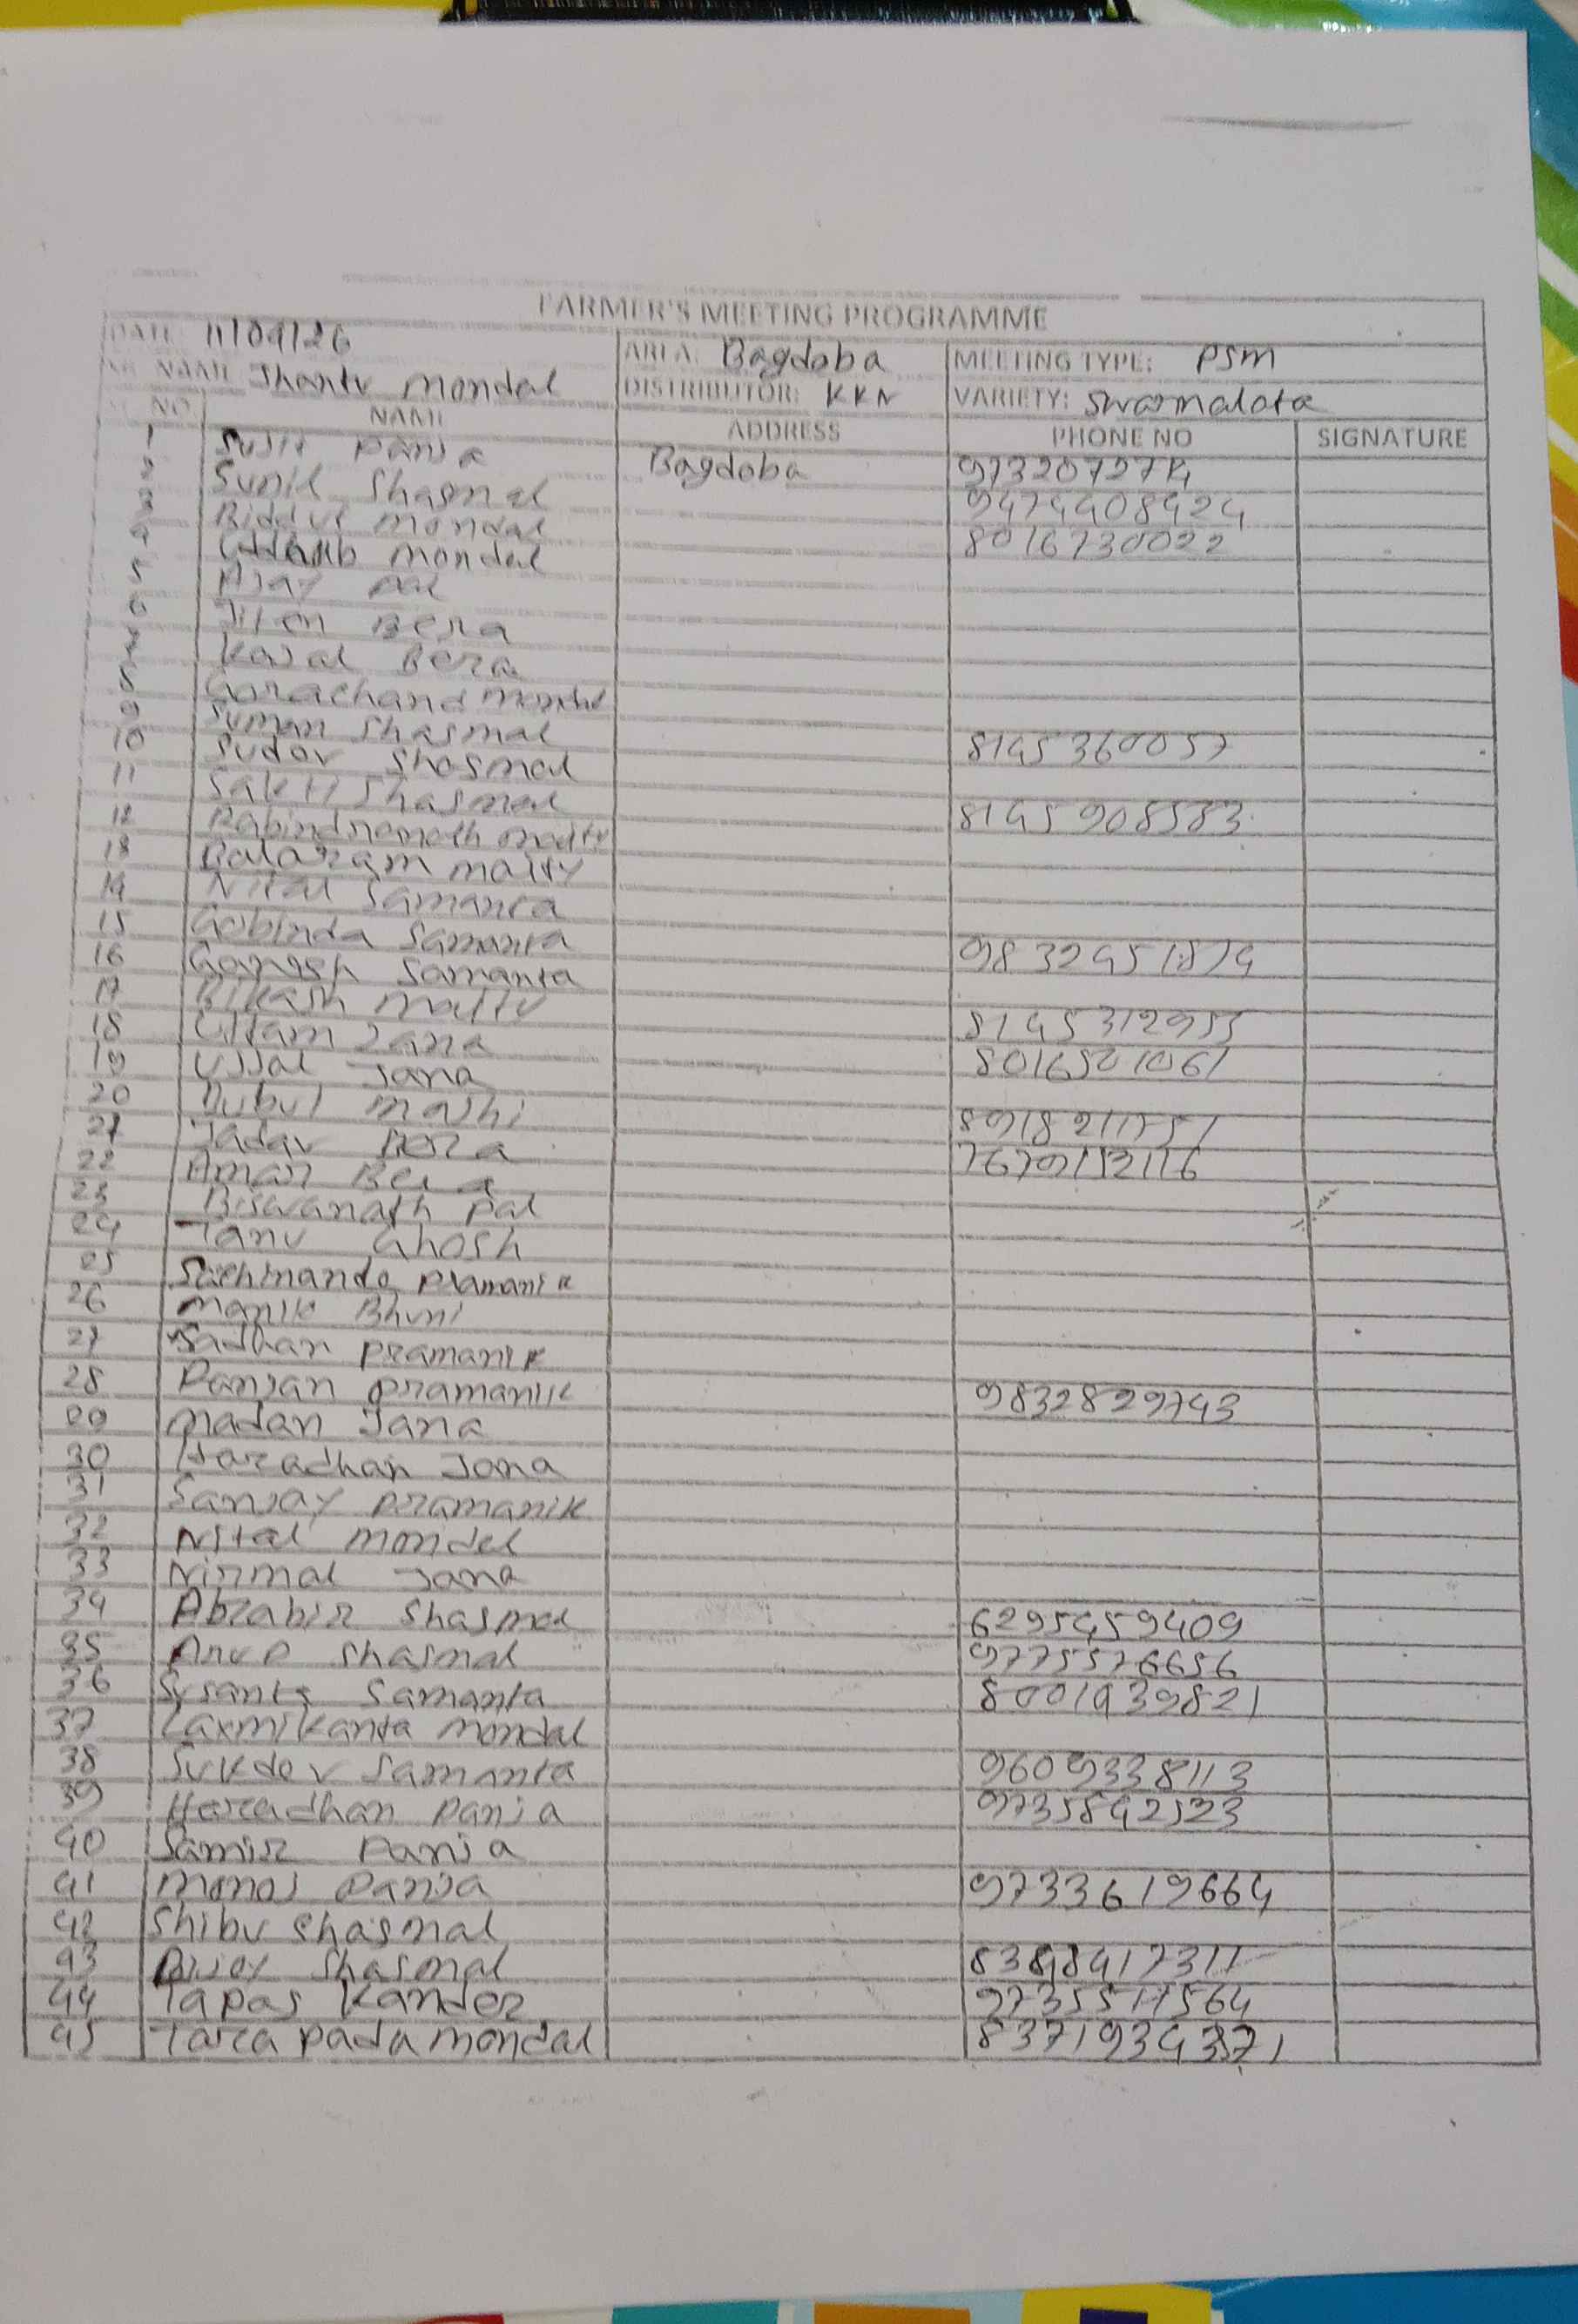 FARMER'S MEETING PROGRAMME
DATE 11/04/26 AREA: Bagdoba MEETING TYPE: PSM
NAME Jhantu Mondal DISTRIBUTOR: KKN VARIETY: Swarnalata
NO NAME ADDRESS PHONE NO SIGNATURE
1 Sujit Panja Bagdoba
2 Sunil Shasmal 9474408424
3 Biddut Mondal 8016730022
4 Uddhab Mondal
5 Ajay Pal
6 Jiten Bera
7 Kajal Bera
8 Gorachand Mondal
9 Suman Shasmal
10 Sudev Shasmal 8145360057
11 Sakti Shasmal
12 Rabindranath Maity 8145908583
13 Balaram Maity
14 Nitai Samanta
15 Gobinda Samanta
16 Ganesh Samanta 9832451814
17 Bikash Maity
18 Uttam Jana 8145312955
19 Ujjal Jana 8016501061
20 Bubul Majhi
21 Jadav Bera
22 Amar Bera 7679152116
23 Biswanath Pal
24 Tanu Ghosh
25 Sachinanda Pramanik
26 Manik Bhuni
27 Sadhan Pramanik
28 Ranjan Pramanik
29 Madan Jana 9832829743
30 Haradhan Jana
31 Sanjay Pramanik
32 Nital Mondal
33 Nirmal Jana
34 Abrabir Shasmal 6295459409
35 Arup Shasmal 9775576656
36 Susanta Samanta 8001939821
37 Laxmikanta Mondal
38 Sukdev Samanta 9609338113
39 Haradhan Panja 9735842523
40 Samir Panja
41 Monoj Panja 9733619664
42 Shibu Shasmal
43 Bijoy Shasmal
44 Tapas Kander 9735517564
45 Tarapada Mondal